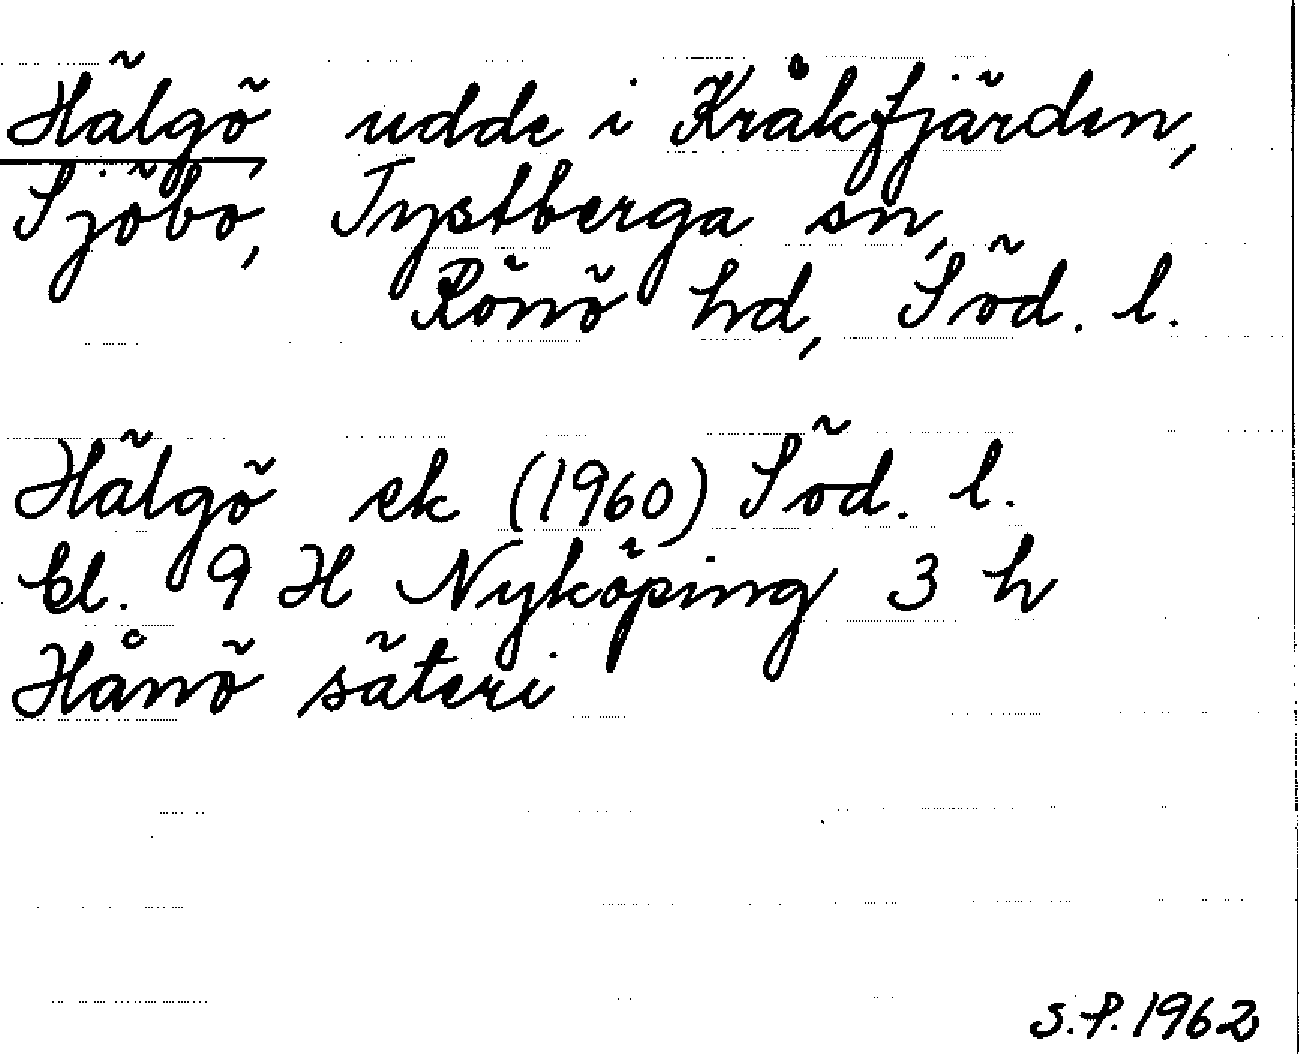 Hälgö udde i Kråkfjärden,
Sjöbo, Tystberga sn,
Rönö hd, Söd. l.
Hälgö ek (1960) Söd. l.
bl. 9 H Nyköping 3 h
Hånö säteri
S.P. 1962